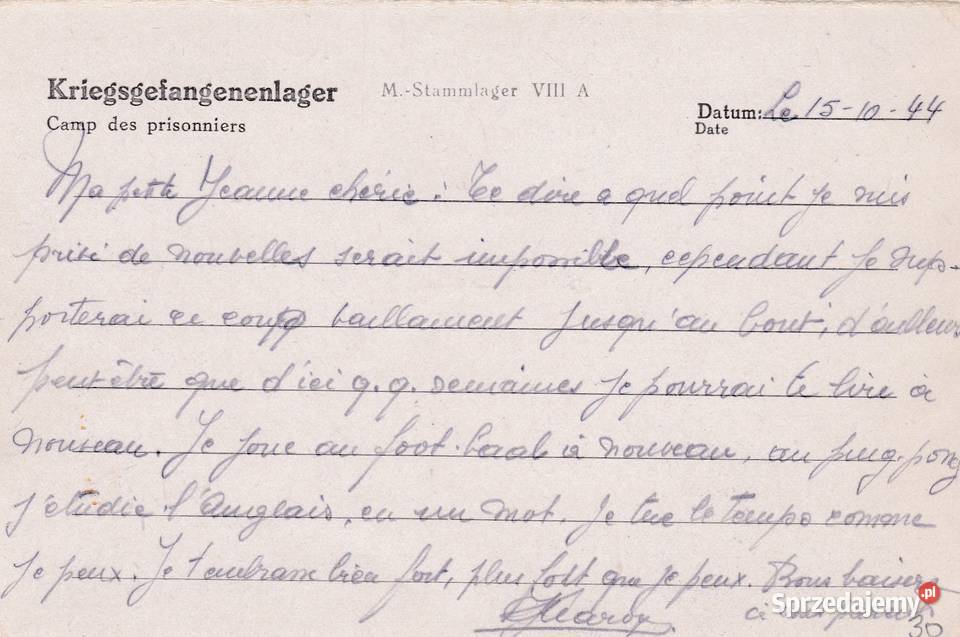 Kriegsgefangenenlager M.-Stammlager VIII A
Camp des prisonniers
Datum: Le 15-10-44
Date
Ma petite Jeanne chérie : Te dire a quel point je suis
privé de nouvelles serait impossible, cependant je sup-
porterai ce coup vaillament jusqu'au bout, d'ailleurs
peut-être que d'ici q.q. semaines je pourrai te lire à
nouveau. Je joue au foot-baal à nouveau, au ping-pong
j'étudie l'Anglais, en un mot. Je tue le temps comme
je peux. Je t'embrasse bien fort, plus fort que je peux. Bons baisers
à
30
Sprzedajemy.pl